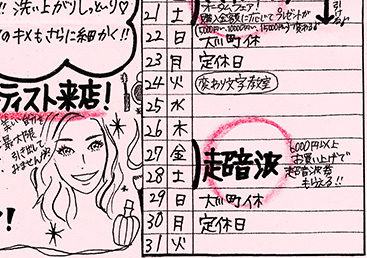 !! 洗い上がりしっとり♡
のキメもさらに細かく!!
ティスト来店!
最大限
引き出して
みませんか
21 土
購入金額に応じてプレゼントが
5000円〜、10000円〜、15000円〜で変わる
22 日 大川町休
23 月 定休日
24 火 変わり文字教室
25 水
26 木
27 金
28 土
超音波
6000円以上
お買い上げで
超音波券
もらえる!!
29 日 大川町休
30 月 定休日
31 火